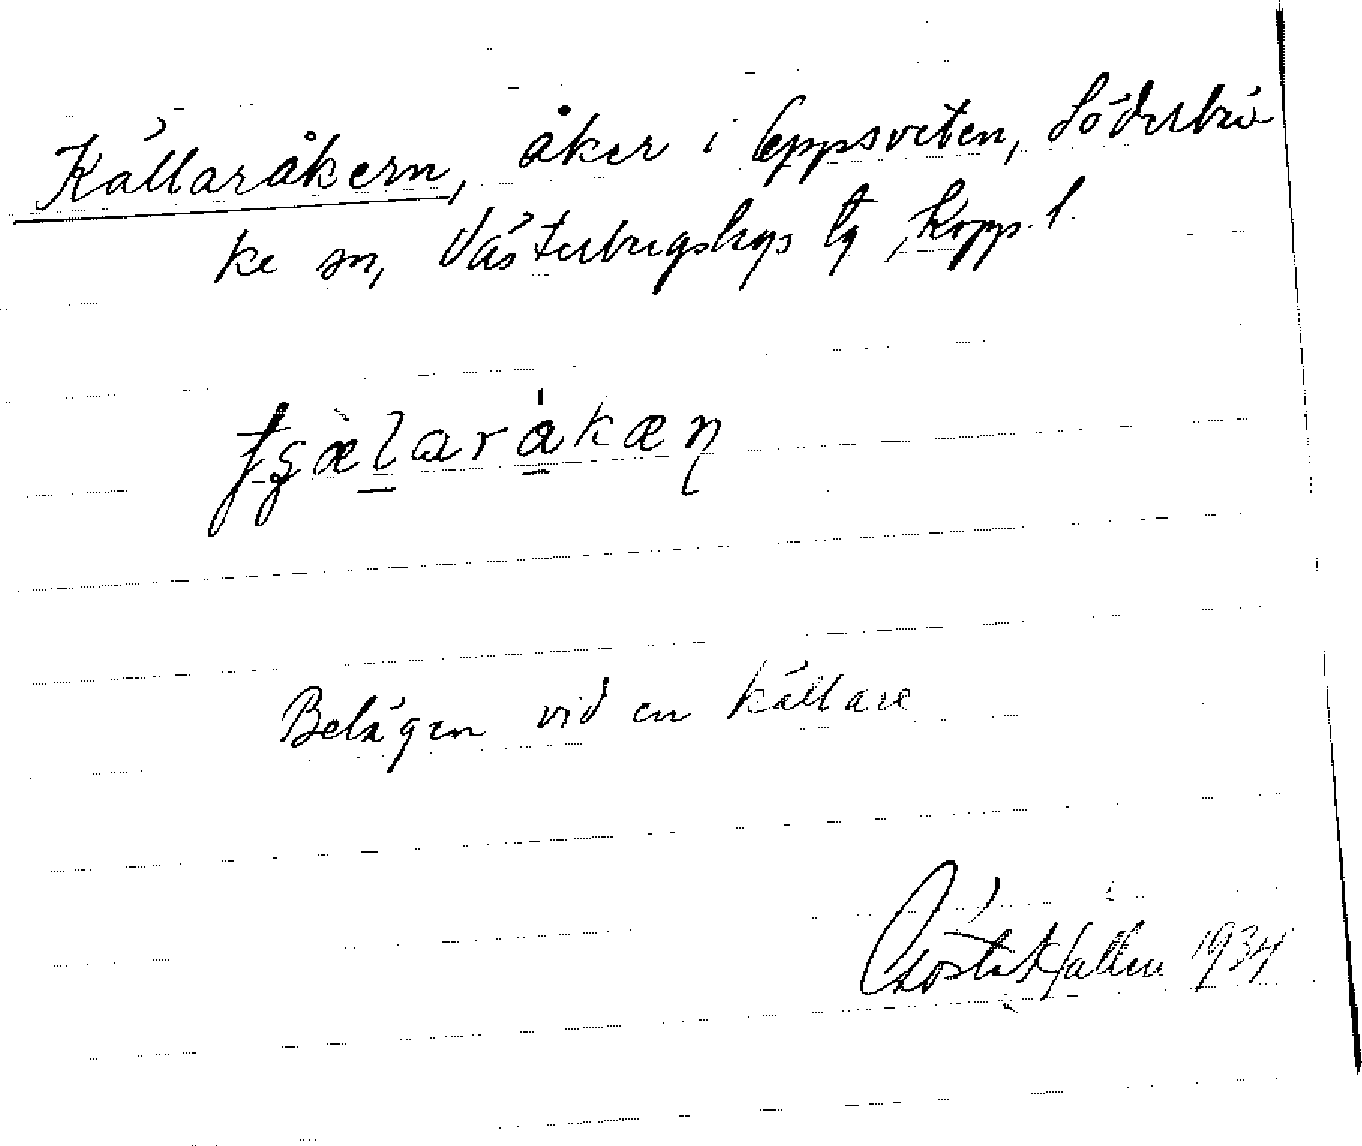 Källaråkern, åker i Eppsveten, Söderbär
ke sn, Västerbergslags tg Kopp. l.
Belägen vid en källare
Gösta Källen 1934